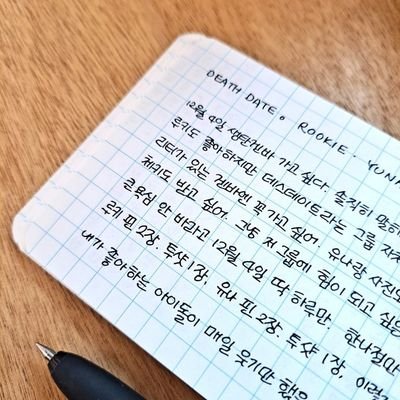 DEATH DATE. ROOKIE. YUNA
12월 4일 생탄겜바 가고 싶다. 솔직히 말하
루키도 좋아하지만 데스데이트라는 그룹 자체
리더가 있는 겜바에 꼭 가고 싶어. 유나랑 사진도
체키도 받고 싶어. 그냥 저 그룹에 힘이 되고 싶은
큰 욕심 안 바라고 12월 4일 딱 하루만. 한나절만
루키 핀 2장. 투샷 1장, 유나 핀 2장. 투샷 1장, 이렇게
내가 좋아하는 아이돌이 매일 웃기만 했으